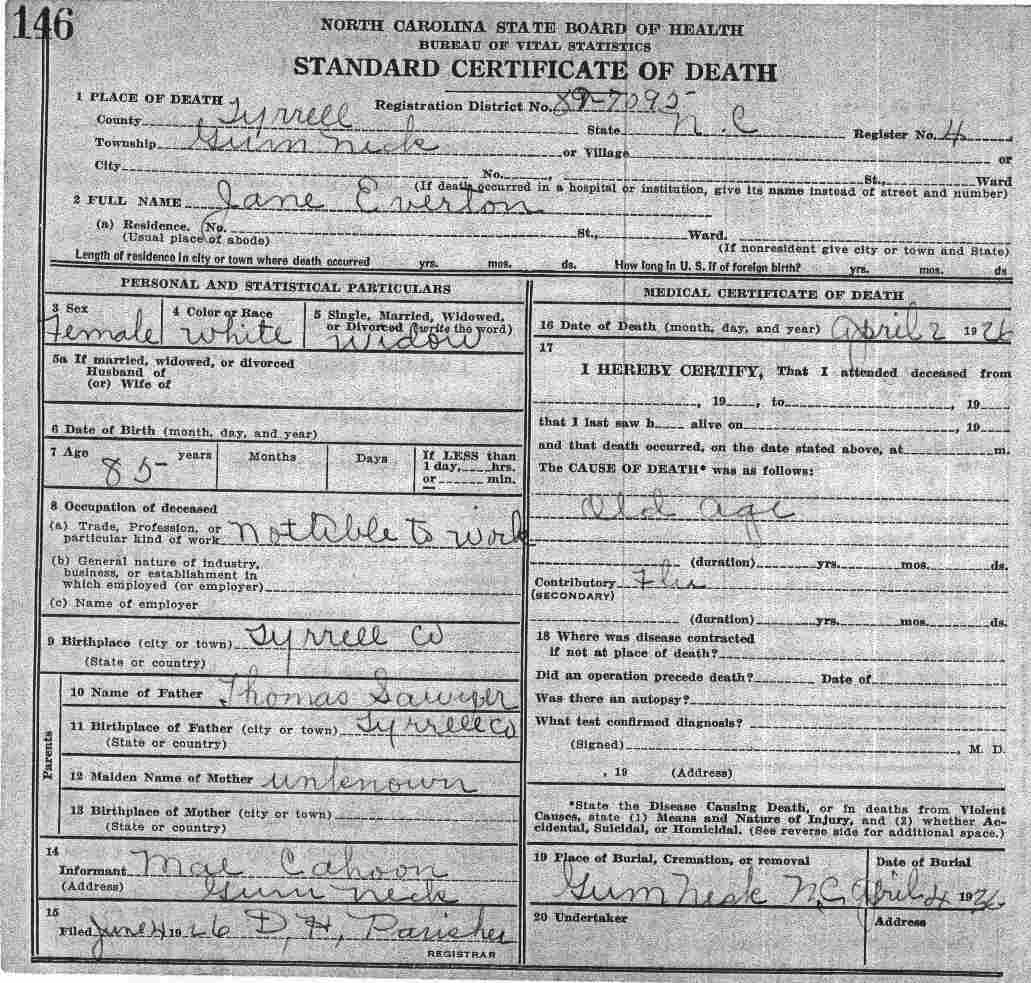 146
NORTH CAROLINA STATE BOARD OF HEALTH
BUREAU OF VITAL STATISTICS
STANDARD CERTIFICATE OF DEATH
1 PLACE OF DEATH Registration District No. 89-7095
County Tyrrell State N.C Register No. 4
Township Gum Neck or Village or
City No. , St., Ward
(If death occurred in a hospital or institution, give its name instead of street and number)
2 FULL NAME Jane Everton
(a) Residence. No. St., Ward.
(Usual place of abode) (If nonresident give city or town and State)
Length of residence in city or town where death occurred yrs. mos. ds. How long in U. S. if of foreign birth? yrs. mos. ds
PERSONAL AND STATISTICAL PARTICULARS
3 Sex 4 Color or Race 5 Single, Married, Widowed,
or Divorced (write the word)
Female White Widow
5a If married, widowed, or divorced
Husband of
(or) Wife of
6 Date of Birth (month, day, and year)
7 Age 85 years Months Days If LESS than
1 day, hrs.
or min.
8 Occupation of deceased
(a) Trade, Profession, or
particular kind of work Not Able to work
(b) General nature of industry,
business, or establishment in
which employed (or employer)
(c) Name of employer
9 Birthplace (city or town) Tyrrell Co
(State or country)
Parents
10 Name of Father Thomas Sawyer
11 Birthplace of Father (city or town) Tyrrell Co
(State or country)
12 Maiden Name of Mother unknown
13 Birthplace of Mother (city or town)
(State or country)
14
Informant Mae Cahoon
(Address) Gum Neck
15
Filed June 4 1926 D, H, Parisher
REGISTRAR
MEDICAL CERTIFICATE OF DEATH
16 Date of Death (month, day, and year) April 2 1926
17
I HEREBY CERTIFY, That I attended deceased from
, 19 , to , 19
that I last saw h alive on , 19
and that death occurred, on the date stated above, at m.
The CAUSE OF DEATH* was as follows:
Old age
(duration) yrs. mos. ds.
Contributory Flu
(SECONDARY)
(duration) yrs. mos. ds.
18 Where was disease contracted
if not at place of death?
Did an operation precede death? Date of
Was there an autopsy?
What test confirmed diagnosis?
(Signed) , M. D.
, 19 (Address)
*State the Disease Causing Death, or in deaths from Violent
Causes, state (1) Means and Nature of Injury, and (2) whether Ac-
cidental, Suicidal, or Homicidal. (See reverse side for additional space.)
19 Place of Burial, Cremation, or removal Date of Burial
Gum Neck N.C. April 4 1926
20 Undertaker Address